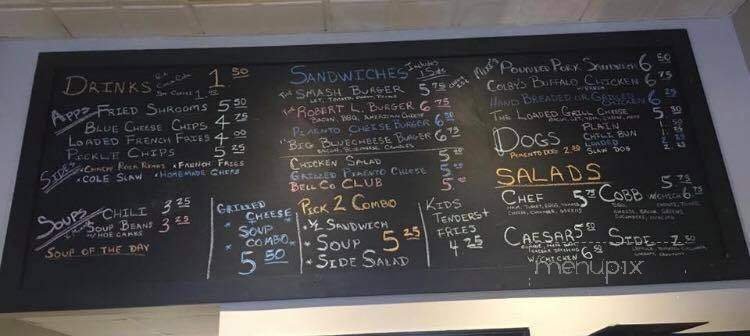 DRINKS 1 50
APPS
FRIED SHROOMS 5 50
BLUE CHEESE CHIPS 4 75
LOADED FRENCH FRIES 4 00
PICKLE CHIPS 5 25
SIDES
* FRENCH FRIES
* COLE SLAW * HOMEMADE CHIPS
SOUPS
CHILI 3 25
SOUP BEANS 3 25
W/ HOE CAKES
SOUP OF THE DAY
GRILLED
CHEESE
* SOUP
COMBO *
5 50
SANDWICHES INCLUDES 1 SIDE
THE SMASH BURGER 6 25
LET, TOMATO, ONION, PICKLE
THE ROBERT L. BURGER 6 75
BACON, BBQ, AMERICAN CHEESE
PIMENTO CHEESE BURGER 6 50
"BIG BLUECHEESE BURGER 6 75
CHICKEN SALAD 5
GRILLED PIMENTO CHEESE 5
BELL CO CLUB 5
PICK 2 COMBO
* 1/2 SANDWICH
* SOUP 5 25
* SIDE SALAD
KIDS
TENDERS +
FRIES
4 25
POUNDED PORK SANDWICH 6 50
COLBY'S BUFFALO CHICKEN 6 75
HAND BREADED OR GRILLED CHICKEN 6 25
THE LOADED GRILL CHEESE 5 50
DOGS
PIMENTO DOG 2 50
PLAIN
CHILI BUN
LOADED
SLAW DOG
SALADS
CHEF 5 75
COBB 5 75
W/ CHICK 6 75
CAESAR 5 50
W/ CHICKEN 6 50
SIDE - 2 50
menupix